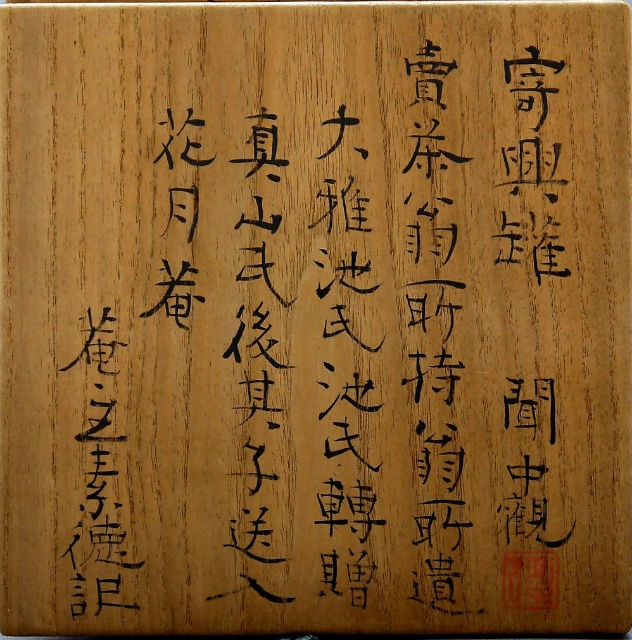 寄興罐 聞中觀
賣茶翁所持翁所遺
大雅池氏池氏轉贈
真山氏後其子送入
花月菴
菴主素德記